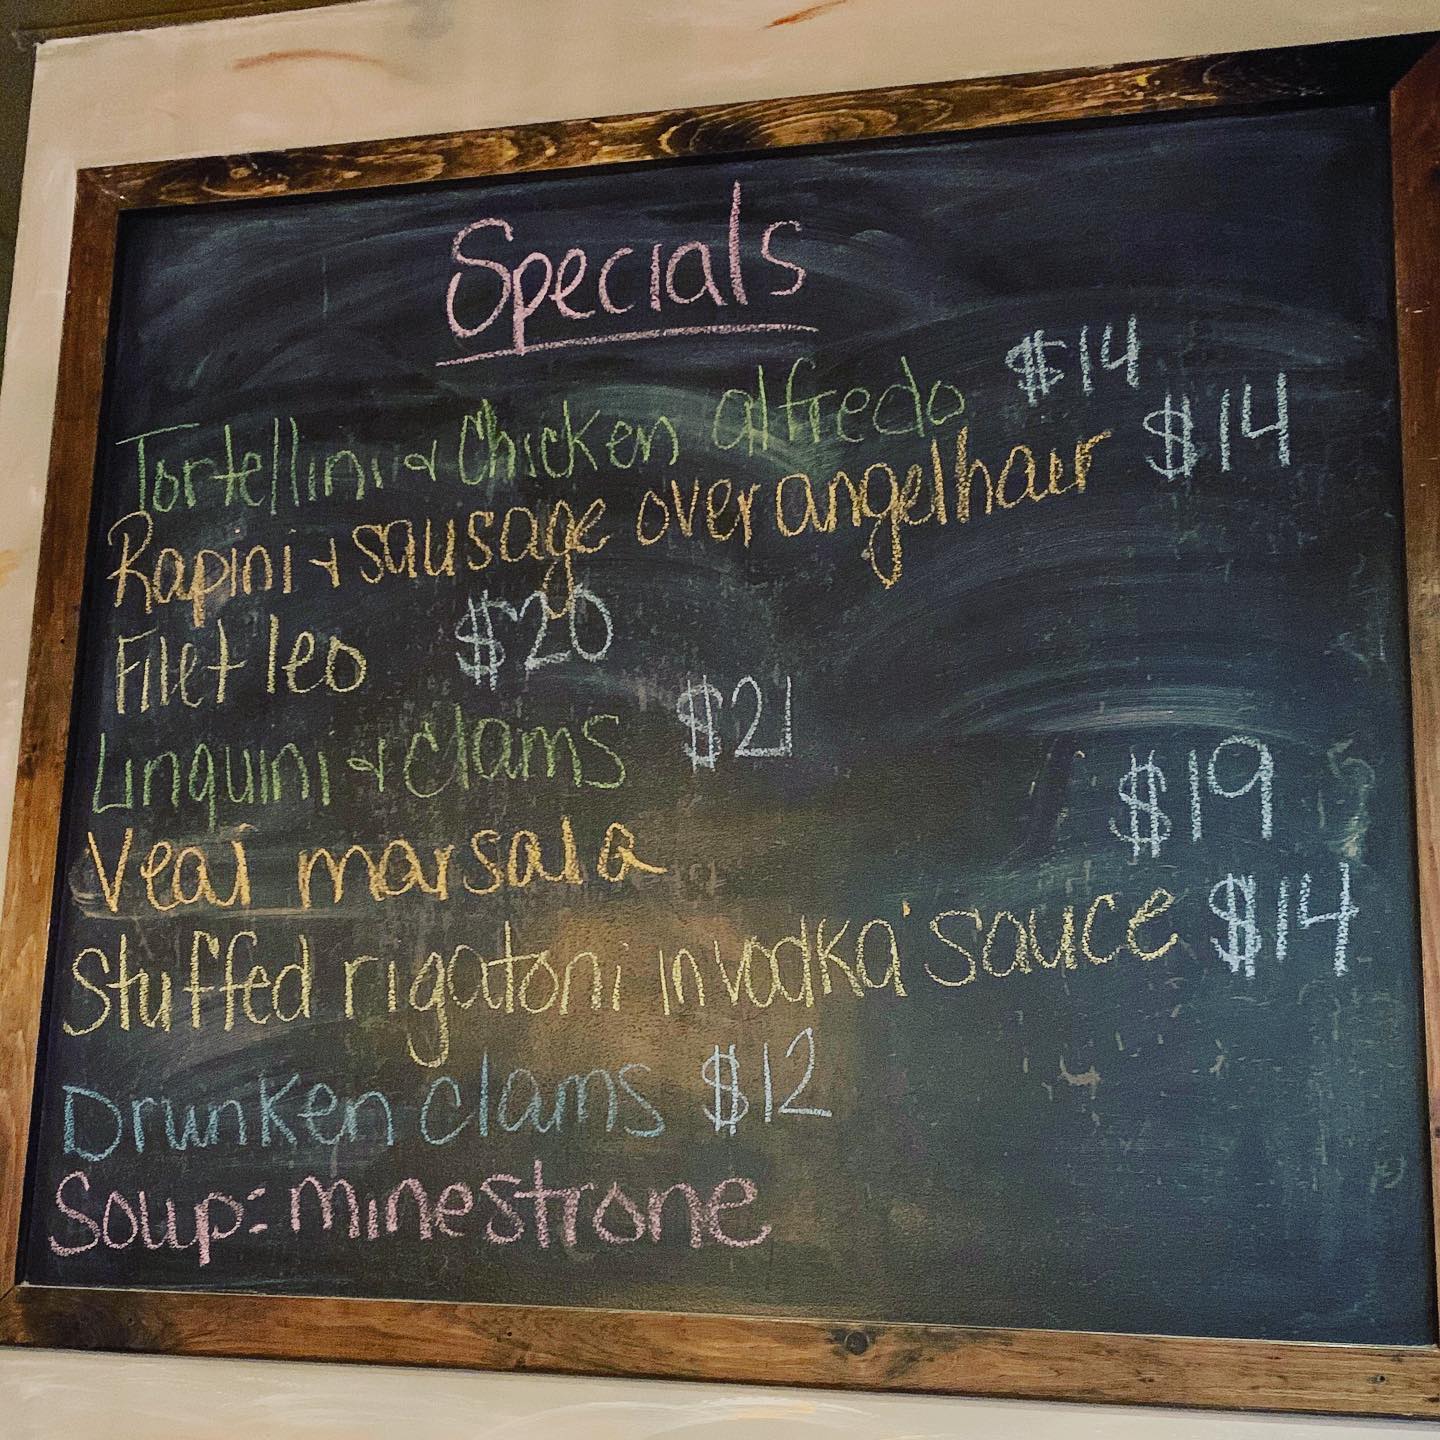 Specials
Tortellini & Chicken alfredo $14
Rapini & sausage over angelhair $14
Filet leo $20
Linquini & clams $21
Veal marsala $19
Stuffed rigatoni in vodka sauce $14
Drunken clams $12
Soup: minestrone